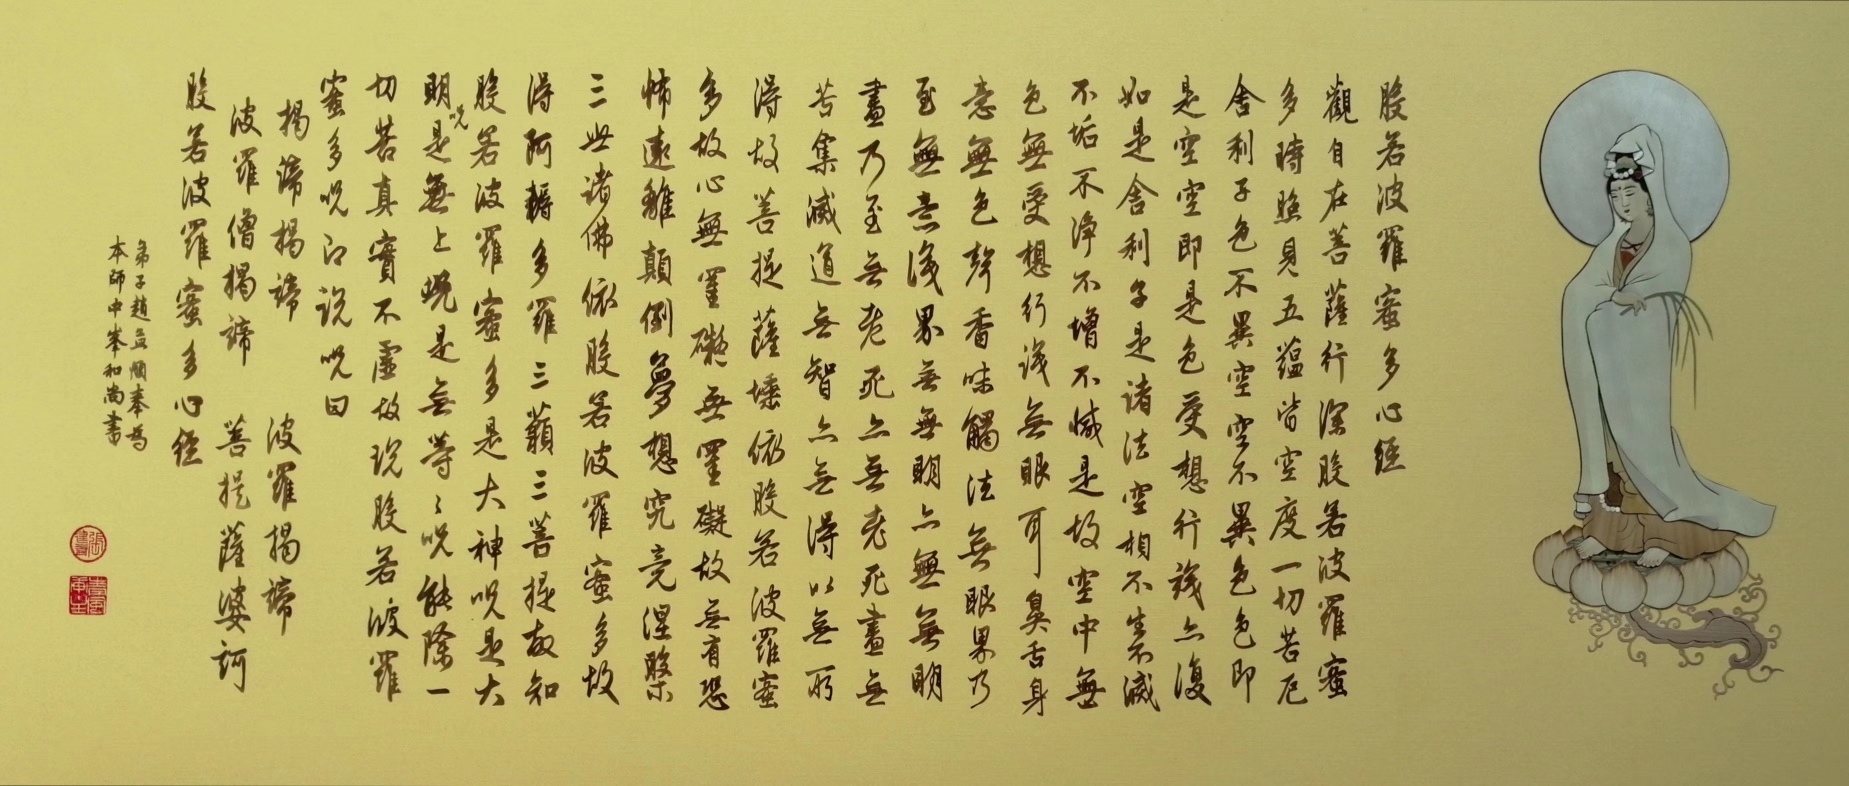 般若波羅蜜多心經
觀自在菩薩行深般若波羅蜜
多時照見五蘊皆空度一切苦厄
舍利子色不異空空不異色色即
是空空即是色受想行識亦復
如是舍利子是諸法空相不生不滅
不垢不淨不增不減是故空中無
色無受想行識無眼耳鼻舌身
意無色聲香味觸法無眼界乃
至無意識界無無明亦無無明
盡乃至無老死亦無老死盡無
苦集滅道無智亦無得以無所
得故菩提薩埵依般若波羅蜜
多故心無罣礙無罣礙故無有恐
怖遠離顛倒夢想究竟涅槃
三世諸佛依般若波羅蜜多故
得阿耨多羅三藐三菩提故知
般若波羅蜜多是大神咒是大
明咒是無上咒是無等々咒能除一
切苦真實不虛故說般若波羅
蜜多咒即說咒曰
揭諦揭諦 波羅揭諦
波羅僧揭諦 菩提薩婆訶
般若波羅蜜多心經
弟子趙孟頫奉為
本師中峯和尚書